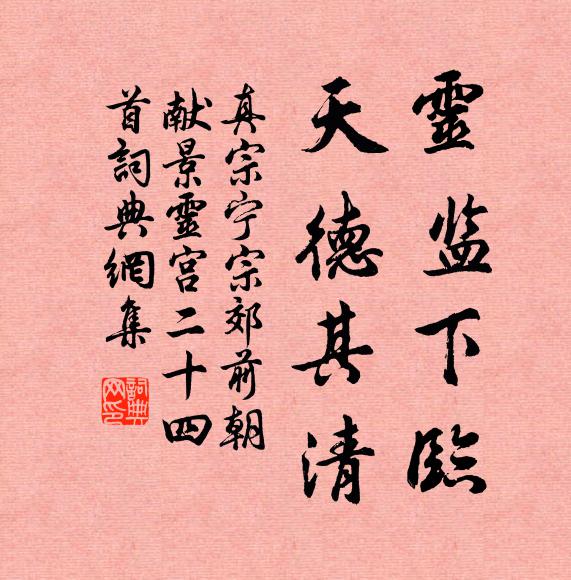 靈监下臨
天德其清
真宗宁宗郊前朝
献景靈宫二十四
首詞典網集
詞典网印